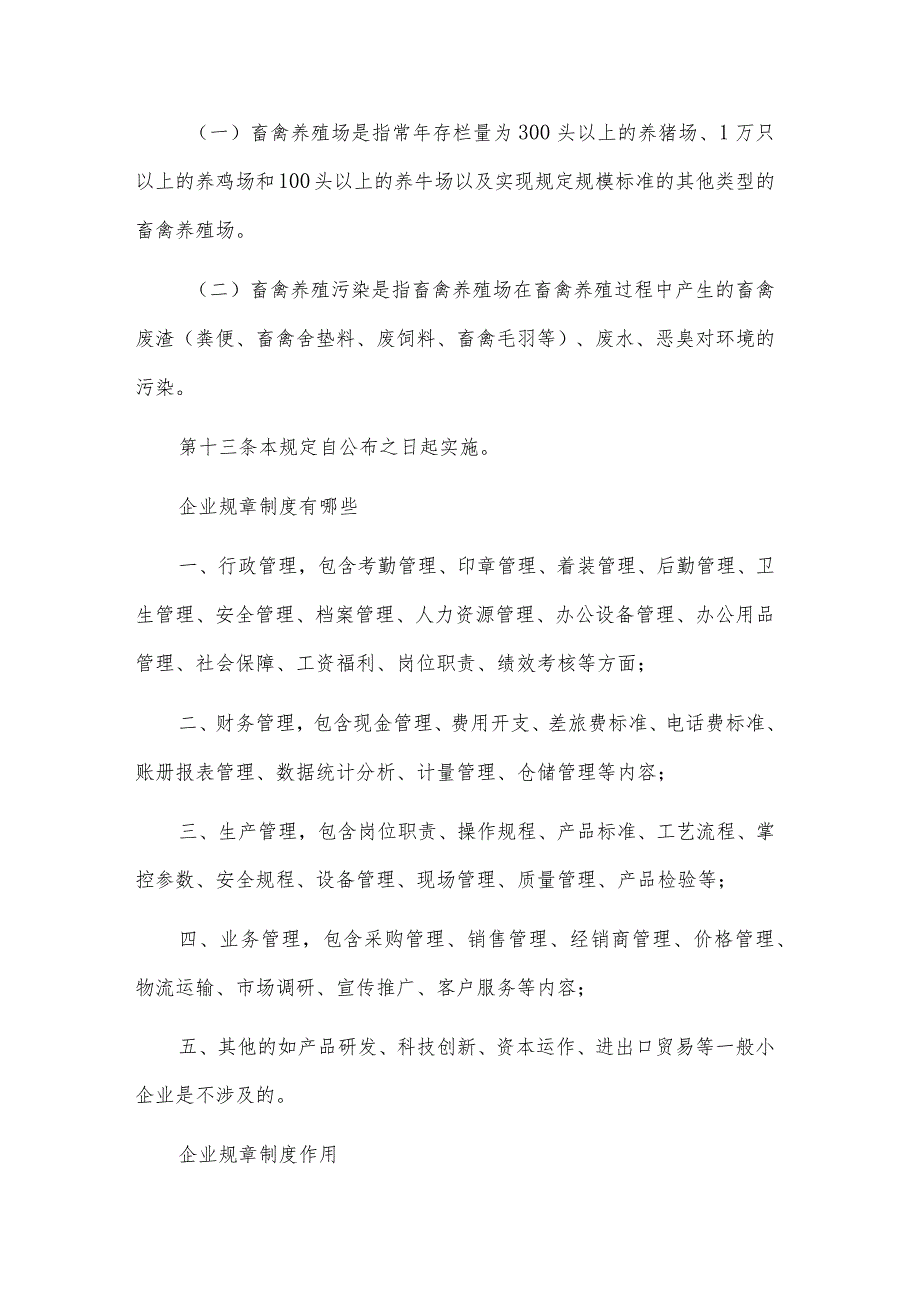 （一）畜禽养殖场是指常年存栏量为 300 头以上的养猪场、1 万只
以上的养鸡场和 100 头以上的养牛场以及实现规定规模标准的其他类型的
畜禽养殖场。
（二）畜禽养殖污染是指畜禽养殖场在畜禽养殖过程中产生的畜禽
废渣（粪便、畜禽舍垫料、废饲料、畜禽毛羽等）、废水、恶臭对环境的
污染。
第十三条本规定自公布之日起实施。
企业规章制度有哪些
一、行政管理，包含考勤管理、印章管理、着装管理、后勤管理、卫
生管理、安全管理、档案管理、人力资源管理、办公设备管理、办公用品
管理、社会保障、工资福利、岗位职责、绩效考核等方面；
二、财务管理，包含现金管理、费用开支、差旅费标准、电话费标准、
账册报表管理、数据统计分析、计量管理、仓储管理等内容；
三、生产管理，包含岗位职责、操作规程、产品标准、工艺流程、掌
控参数、安全规程、设备管理、现场管理、质量管理、产品检验等；
四、业务管理，包含采购管理、销售管理、经销商管理、价格管理、
物流运输、市场调研、宣传推广、客户服务等内容；
五、其他的如产品研发、科技创新、资本运作、进出口贸易等一般小
企业是不涉及的。
企业规章制度作用